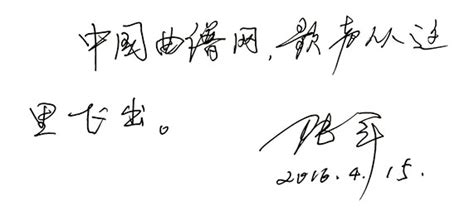 中国曲谱网,歌声从这
里飞出。
张军
2016.4.15.